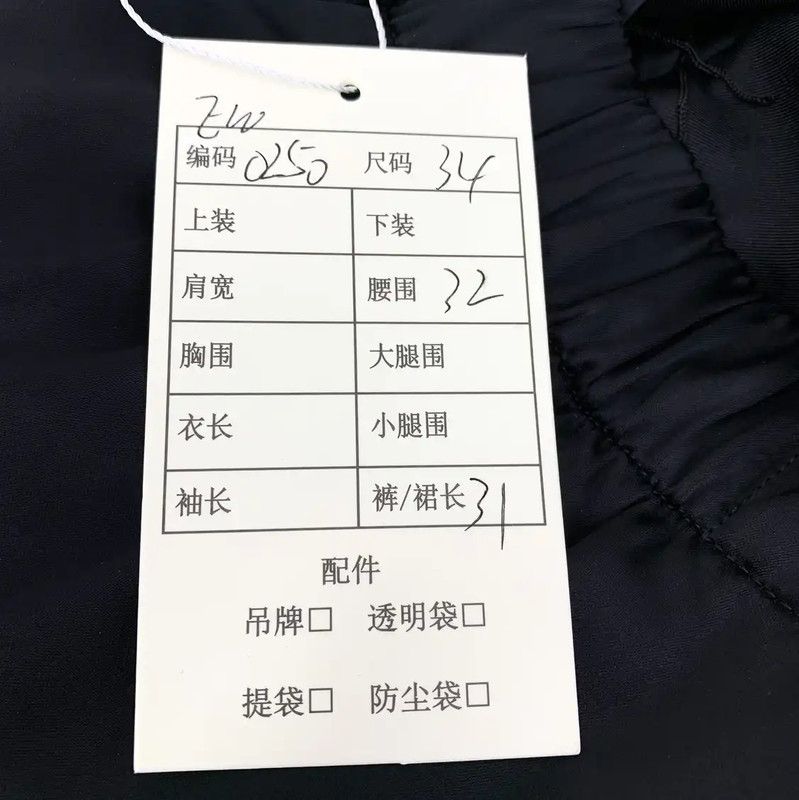 EW
编码 0250 尺码 34
上装 下装
肩宽 腰围 32
胸围 大腿围
衣长 小腿围
袖长 裤/裙长 31
配件
吊牌□ 透明袋□
提袋□ 防尘袋□